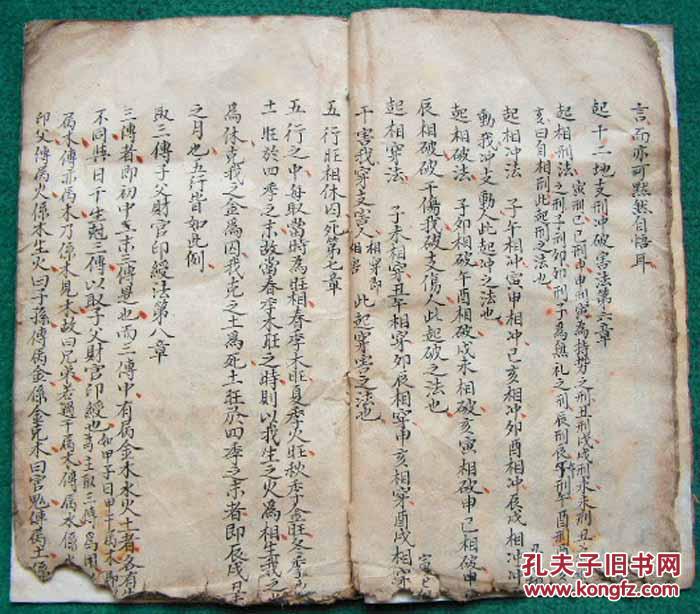 言而亦可黙然自悟耳
起十二地支刑冲破害法第六章
起相刑法 寅刑巳巳刑申申刑寅為持势之刑丑刑戌戌刑未未刑丑
之刑子刑卯卯刑子為無礼之刑辰刑辰午刑午酉刑酉
亥曰自相刑此起刑之法也
起相冲法 子午相冲寅申相冲巳亥相冲卯酉相冲辰戌相冲
動我冲支動人此起冲之法也
起相破法 子卯相破午酉相破戌未相破亥寅相破申巳相破
辰相破破干傷我破支傷人此起破之法也
起相穿法 子未相穿丑午相穿卯辰相穿申亥相穿酉戌相穿
寅巳
干害我穿支害人 相穿即相害 此起穿害之法也
五行旺相休囚死第七章
五行之中每取當時為旺相春季木旺夏季火旺秋季金旺冬季
土旺於四季之末故當春季木旺之時則以我生之火為相生我之
為休克我之金為囚我克之土為死土旺於四季之末者即辰戌丑
之月也五行皆如此例
取三傳子父財官印綬法第八章
三傳者即初中末三傳是也而三傳中有属金木水火土者各有
不同與日干生尅三傳以取子父財官印綬也如甲子日甲干属木即
為主取三傳為用
属木傳亦属木乃係木見木故曰兄弟若遇干属木傳属水係水
印父傳属火係木生火曰子孫傳属金係金克木曰官鬼傳属土係
孔夫子旧书网
www.kongfz.com